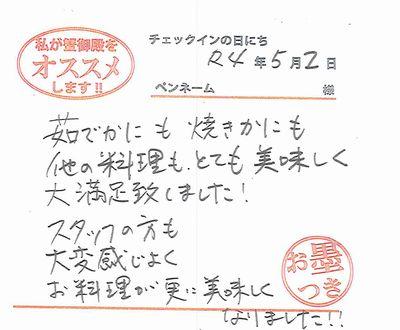 私が蟹御殿を
オススメ
します!!
チェックインの日にち
R4年5月2日
ペンネーム 様
茹でかにも焼きかにも
他の料理も、とても美味しく
大満足致しました!
スタッフの方も
大変感じよく
お料理が更に美味しく
なりました!!
お墨つき